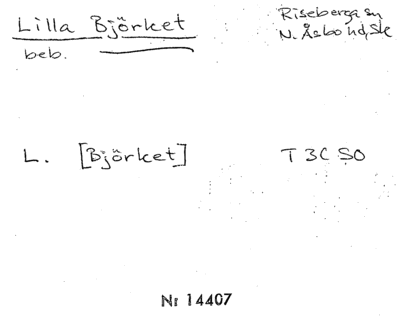 Lilla Björket
Riseberga sn
beb.
N. Åsbo hd, Sk
L. [Björket]
T 3C SO
Nr 14407